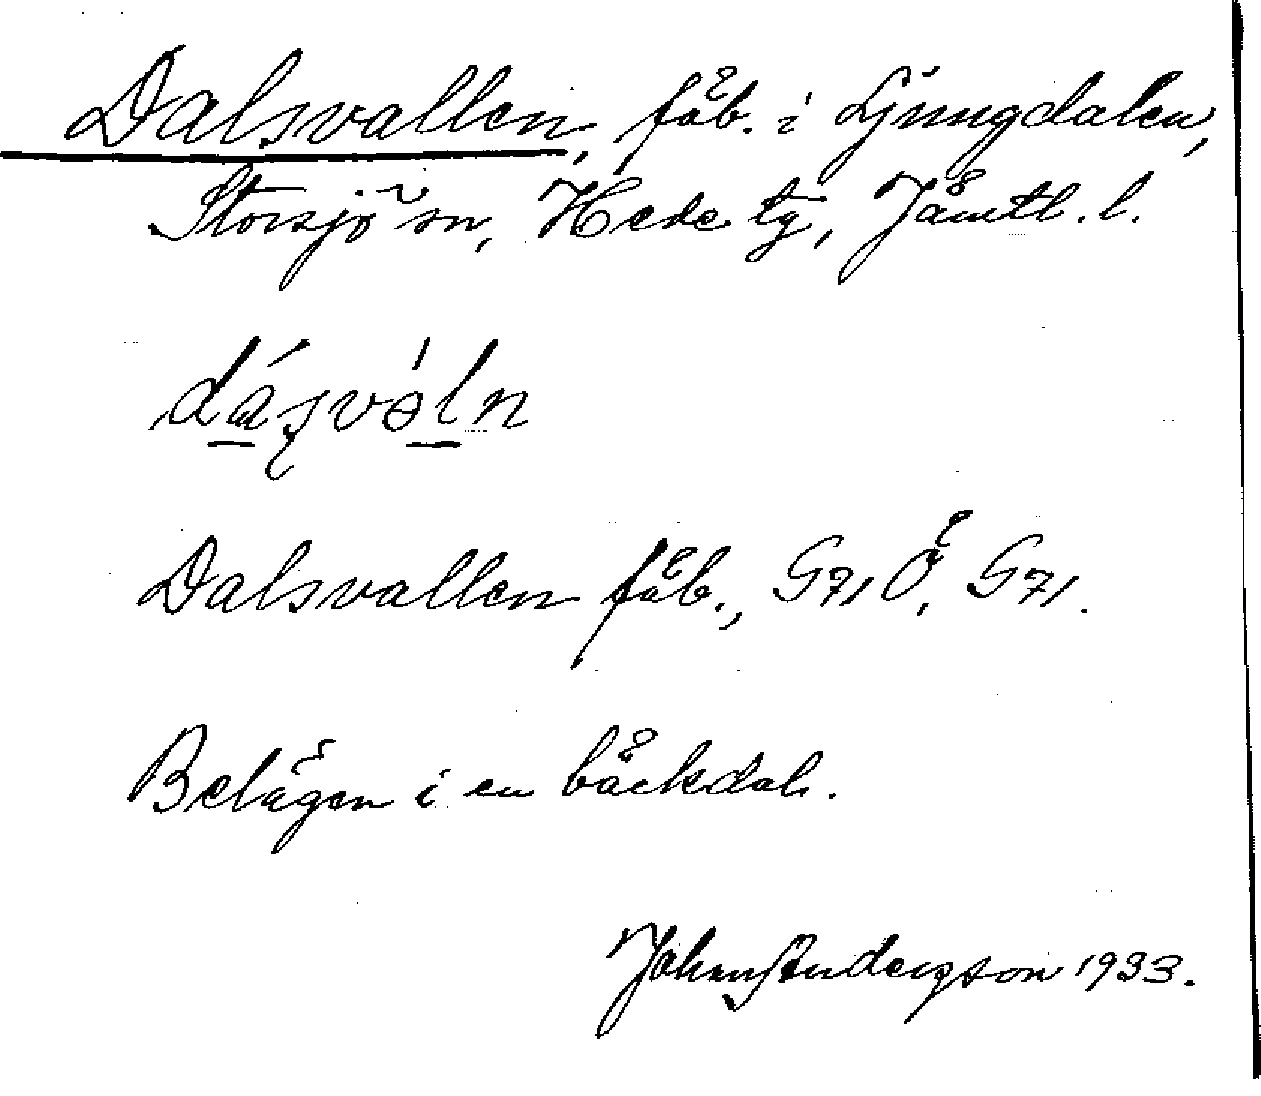 Dalsvallen, fäb. i Ljungdalen,
Storsjö sn, Hede tg, Jämtl. l.
dásvəln
Dalsvallen fäb., G71Ö, G71.
Belägen i en bäckdal.
Johnny Andersson 1933.